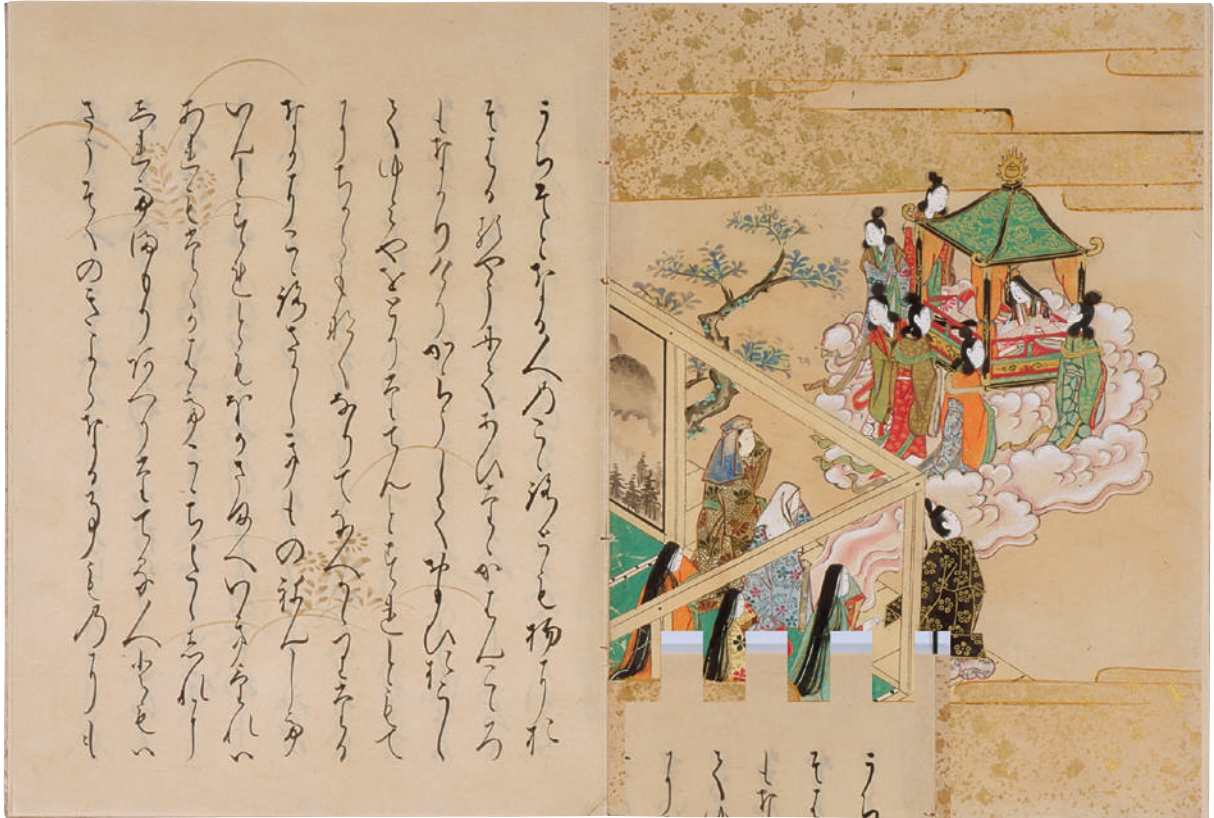 うちそとなる人のこゝろとも物にお
そはるゝやうにてあひたゝかはんこゝろ
もなかりけりからうしておもひおこし
てゆみやをとりたてんとすれともて
にちからもなくなりてなへかゝりたる
なかにこゝろさかしきものねんして
いんとすれともほかさまへいきけれは
あれもたゝかはてこゝちたゝしれに
しれてまもりあへりたてる人ともは
さうそくのきよらなる事ものにも
うち
そは
もな
てゆ
に